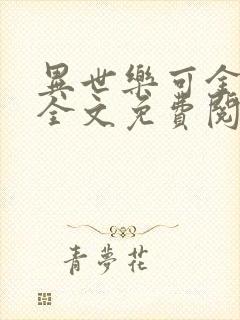 異世樂可全
全文免費閱
青夢花